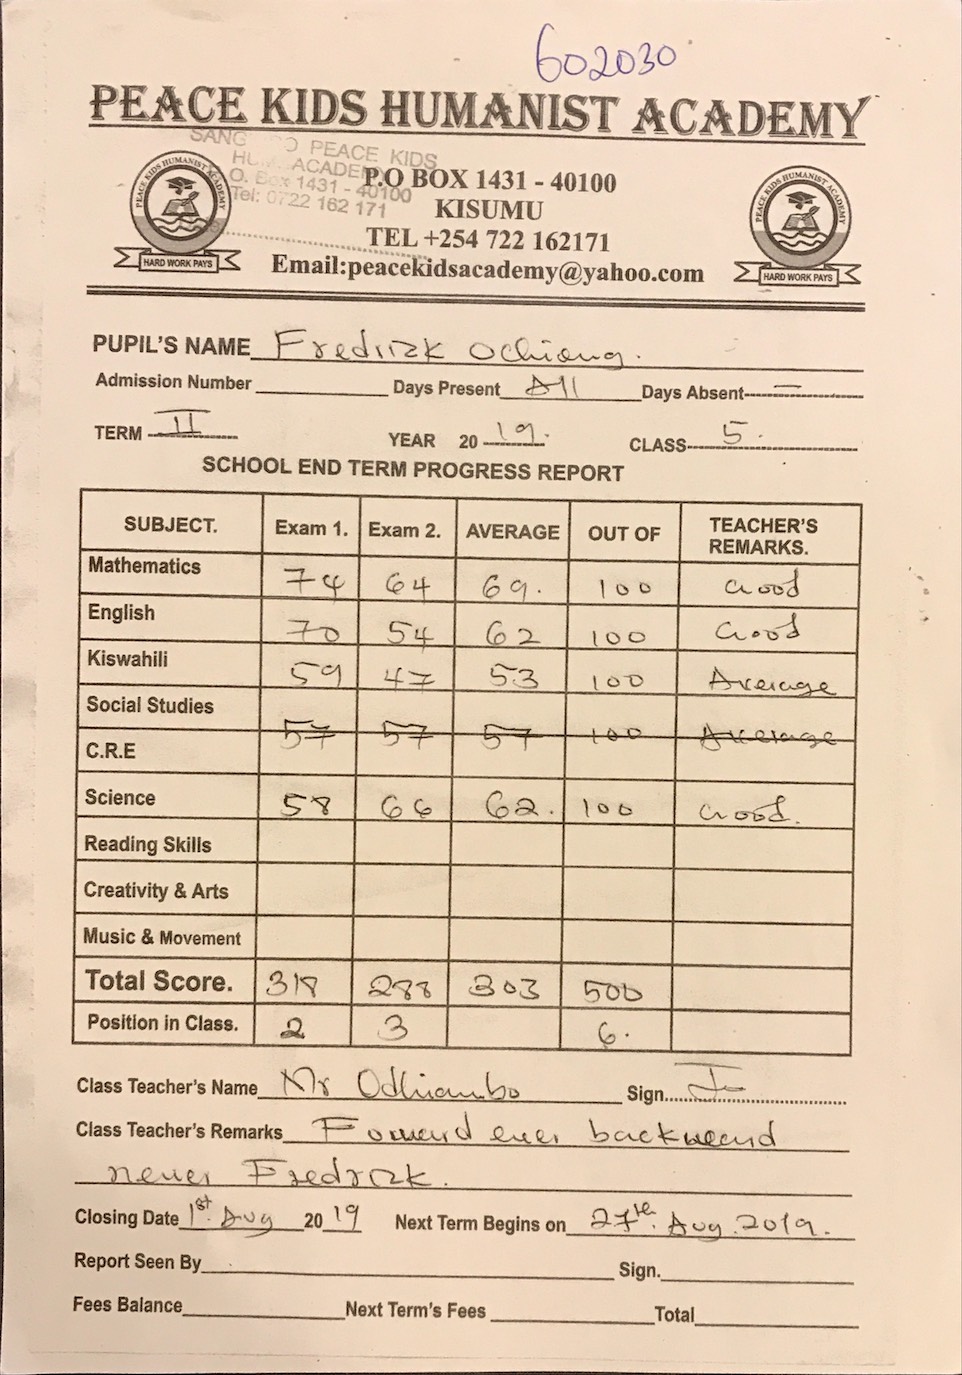 602030
PEACE KIDS HUMANIST ACADEMY
SANG O PEACE KIDS
HU ACADE
O. Box 1431 - 40100
Tel: 0722 162 171
P.O BOX 1431 - 40100
KISUMU
TEL +254 722 162171
Email:peacekidsacademy@yahoo.com
PEACE KIDS HUMANIST ACADEMY
HARD WORK PAYS
PEACE KIDS HUMANIST ACADEMY
HARD WORK PAYS
PUPIL'S NAME Fredrizk Ochieng.
Admission Number Days Present All Days Absent —
TERM II YEAR 2019. CLASS 5.
SCHOOL END TERM PROGRESS REPORT
SUBJECT. Exam 1. Exam 2. AVERAGE OUT OF TEACHER'S REMARKS.
Mathematics 74 64 69. 100 Good
English 70 54 62 100 Good
Kiswahili 59 47 53 100 Average
Social Studies
57 57 57 100 Average
C.R.E
Science 58 66 62. 100 Good.
Reading Skills
Creativity & Arts
Music & Movement
Total Score. 318 288 303 500
Position in Class. 2 3 6.
Class Teacher's Name Mr Odhiambo Sign.
Class Teacher's Remarks Forward ever backward
never Fredrizk.
Closing Date 1st. Aug 2019 Next Term Begins on 27th. Aug. 2019.
Report Seen By Sign.
Fees Balance Next Term's Fees Total